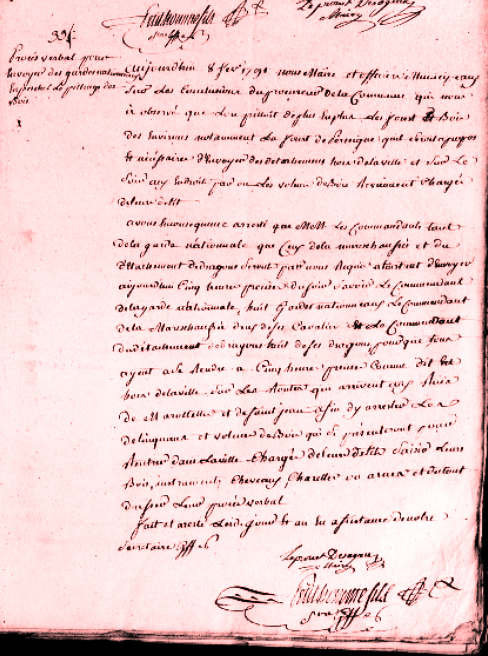 Procès verbal pour
Envoyer des gardes nationaux
Empêcher Le pillage des
Bois
aujourdhuy 8 fev. 1791 nous Maire et officiers Municipaux
Sur Les Conclusions du procureur de la Commune qui nous
a observé que L'on pilloit de plus En plus Les forest Et Bois
des Environs notamment La forest de Perseigne quil Seroit apropos
Et nécessaire d'Envoyer des détachemens hors de la ville et Sur Le
Soir aux Endroit par ou Les voleurs de Bois Reviennent Chargés
de leur délit
avons En conséquence arresté que MM Les Commandants tant
de la garde nationnale que Ceux de la mareschaussée et du
Détachement de dragons Seront par nous Requis d'Envoyer
aujourdhuy Cinq heures précise du Soir Savoir Le Commandant
de la garde nationale, huit gardes nationnaux Le Commandant
de la Mareschaussée deux de Ses Cavaliers Et Le Commandant
du détachement de dragons huit de Ses dragons pour que tous
ayent a Se Rendre a Cinq heures précise Comme dit Est
hors de la ville Sur Les Routes qui arrivent aux
de Marollette et de Saint jean afin d'y arrester Les
délinquans et voleurs de Bois qui Se présenteront pour
Rentrer dans La ville Chargés de leurs délits Saisir Leurs
Bois, instruments, Chevaux, Charettes ou arnois et du tout
dresser Leur procès verbal
fait et aresté Les d. jour Et an En assistance de notre
Secretaire Gff